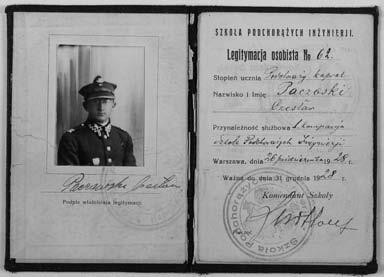 Paczoski Czesław
Podpis właściciela legitymacji.
SZKOŁA PODCHORĄŻYCH INŻYNIERJI.
Legitymacja osobista № 62.
Stopień ucznia Podchorąży kapral
Nazwisko i Imię Paczoski
Czesław
Przynależność służbowa 1. kompanja
Szkoły Podchorążych Inżynierji
Warszawa, dnia 26 października 1928 r.
Ważna do dnia 31 grudnia 1928 r.
Komendant Szkoły